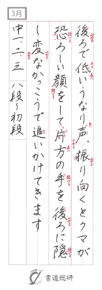 3月
後ろで低いうなり声。振り向くとクマが
恐ろしい顔をして片方の手を後ろに隠
し変なかっこうで追いかけてきます
中一・二・三 八段〜初段
書道総研